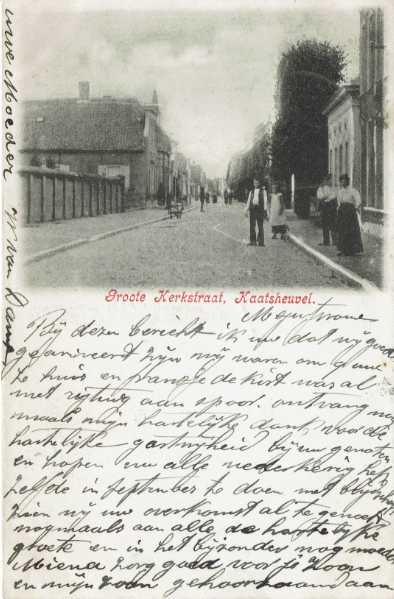 Groote Kerkstraat, Kaatsheuvel.
Mejufvrouw
Bij dezen bericht ik uw dat wij goed
gearriveert zijn wij waren om 9 uur
te huis en fransje de kist was al
met rytuig aan spoor. ontvang nog
maals mijn hartelijke dank voor de
hartelijke gastvryheid bij uw genoten
en hopen uw alle wederkerig het
zelfde in September te doen met blydschap
zien wij uw overkomst al te gemoet
nogmaals aan alle de hartelijke
groete en in het bijzonder nog moeder
Miena zorg goed voor Zoon
en mijn zoon gehoorzaam aan
uwe Moeder
W van Dam